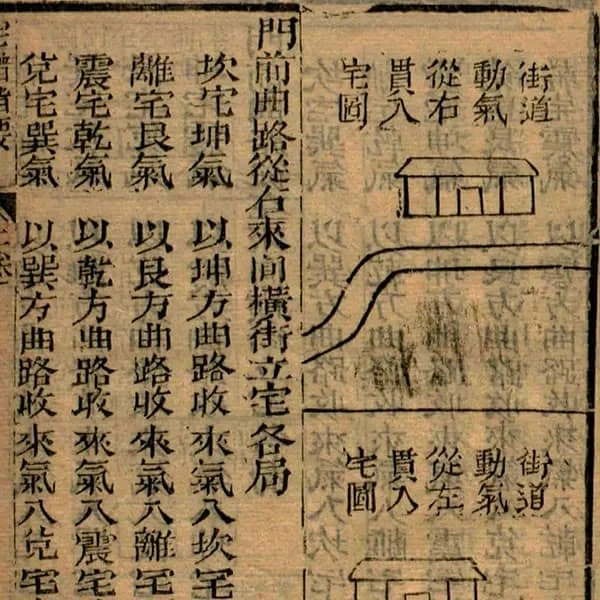 街道
動氣
從右
貫入
宅圖
街道
動氣
從左
貫入
宅圖
門前曲路從右來向橫街立宅各局
坎宅坤氣　以坤方曲路收來氣入坎宅
離宅艮氣　以艮方曲路收來氣入離宅
震宅乾氣　以乾方曲路收來氣入震宅
兌宅巽氣　以巽方曲路收來氣入兌宅